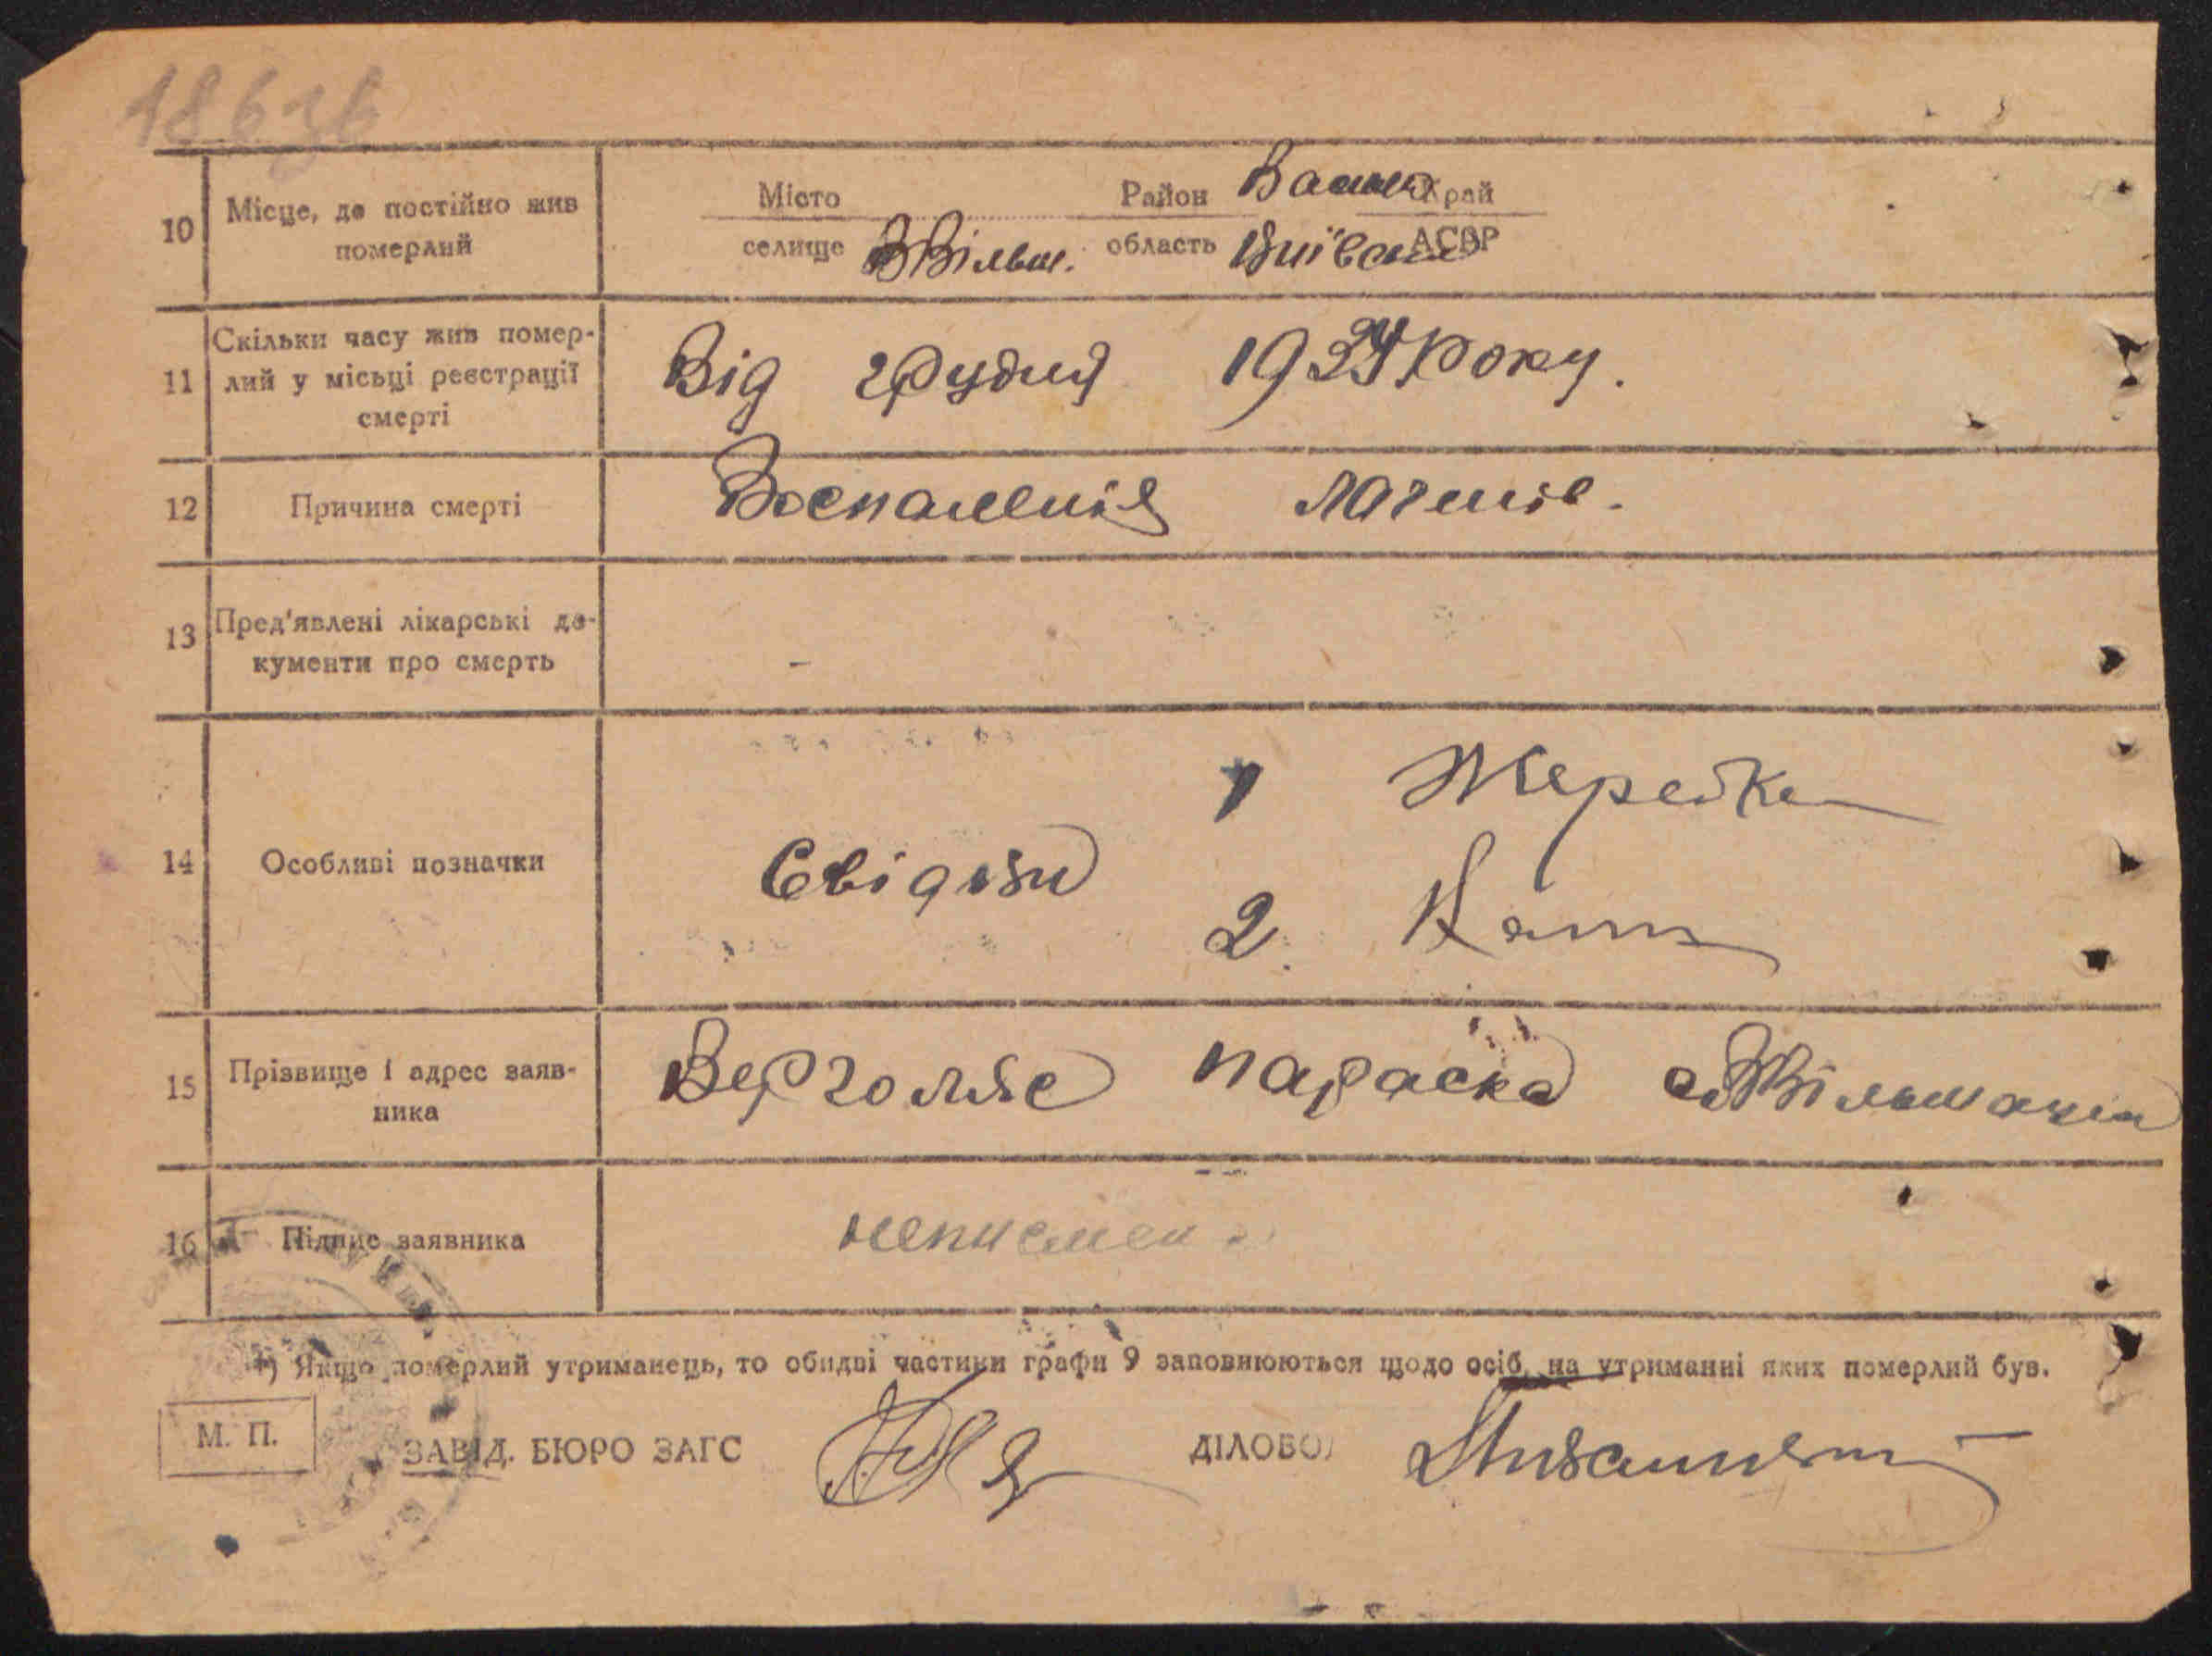 10 Місце, де постійно жив померлий
Місто
селище ВВільш.
Район Васильк Край
область Київська АСРР
11 Скільки часу жив помер-
лий у місці реєстрації
смерті
Від грудня 1934 Року.
12 Причина смерті
Воспаленія легенів.
13 Пред'явлені лікарські до-
кументи про смерть
-
14 Особливі позначки
Свідки
1 Жерейко
2.
15 Прізвище і адрес заяв-
ника
Верголяс Параска с. ВВільшанка
16 Підпис заявника
неписьмен
*) Якщо померлий утриманець, то обидві частини графи 9 заповнюються щодо осіб, на утриманні яких померлий був.
М. П.
ЗАВІД. БЮРО ЗАГС
ДІЛОВОД